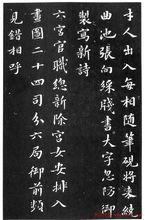 才人出入每相隨筆硯將來繞
曲池張向綵牋書大字忽防御
製寫新詩
六宮官職總新除宮女安排入
畫圖二十四司分六局御前頻
見錯相呼